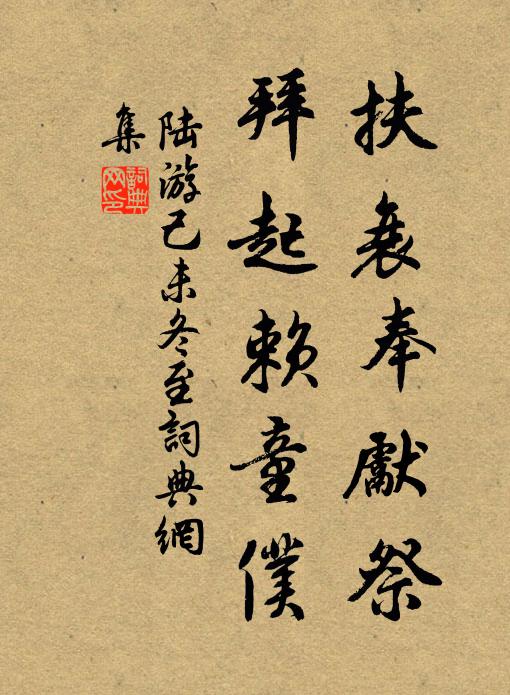 扶衰奉獻祭
拜起賴童僕
陸游己未冬至詞典網
集
詞典
网印